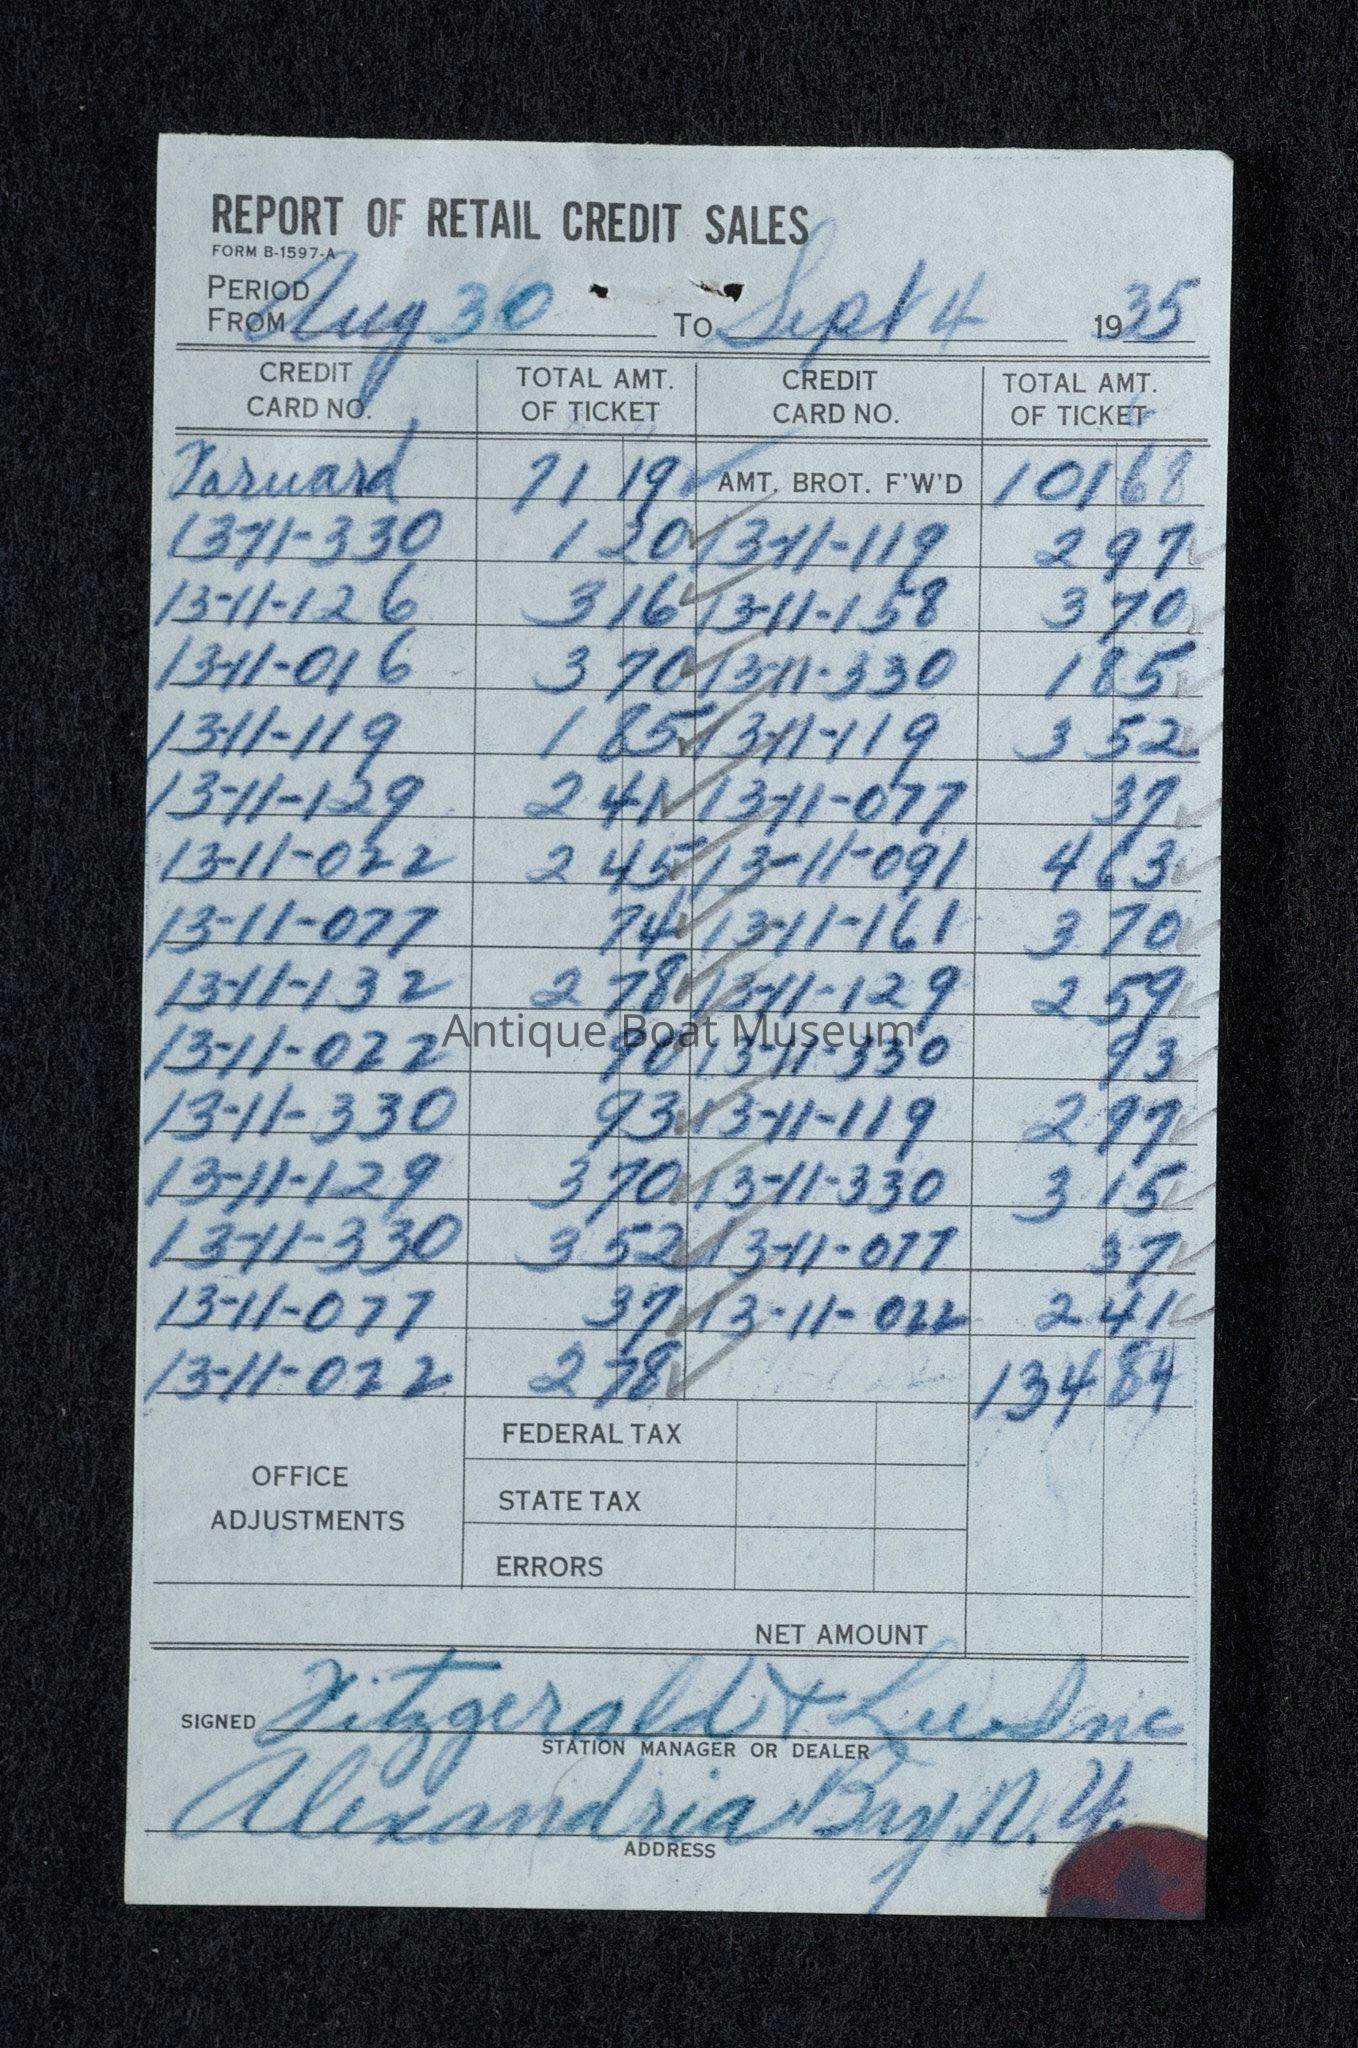 REPORT OF RETAIL CREDIT SALES
FORM B-1597-A
PERIOD
FROM Aug 30 To Sept 4 1935
CREDIT CARD NO. TOTAL AMT. OF TICKET CREDIT CARD NO. TOTAL AMT. OF TICKET
Forward 71 19 AMT. BROT. F'W'D 101 68
13-11-330 1 20 13-11-119 2 97
13-11-126 3 16 13-11-158 3 70
13-11-016 3 70 13-11-330 1 85
13-11-119 1 85 13-11-119 3 52
13-11-129 2 41 13-11-077 37
13-11-022 2 45 13-11-091 4 63
13-11-077 74 13-11-161 3 70
13-11-132 2 78 13-11-129 2 59
Antique Boat Museum
13-11-022 90 13-11-330 93
13-11-330 93 13-11-119 2 97
13-11-129 3 70 13-11-330 3 15
13-11-330 3 52 13-11-077 37
13-11-077 37 13-11-022 2 41
13-11-022 2 78 134 84
OFFICE ADJUSTMENTS
FEDERAL TAX
STATE TAX
ERRORS
NET AMOUNT
SIGNED Fitzgerald & Lee Inc
STATION MANAGER OR DEALER
Alexandria Bay N.Y.
ADDRESS